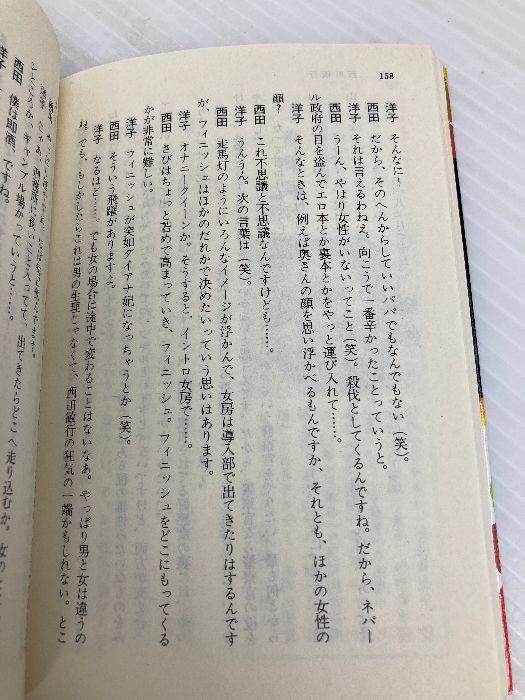 158
洋子　そんなに！
西田　だから、そのへんからしていいパパでもなんでもない（笑）。
洋子　それは言えるわねえ。向こうで一番辛かったことっていうと。
西田　うーん、やはり女性がいないってこと（笑）。殺伐としてくるんですね。だから、ネパー
ル政府の目を盗んでエロ本とか裏本とかをやっと運び入れて……。
洋子　そんなときは、例えば奥さんの顔を思い浮かべるもんですか、それとも、ほかの女性の
顔？
西田　これ不思議と不思議なんですけども……。
洋子　うんうん。次の言葉は（笑）。
西田　走馬灯のようにいろんなイメージが浮かんで、女房は導入部で出てきたりはするんです
が、フィニッシュはほかのだれかで決めたいっていう思いはあります。
洋子　オナニークイーンか。そうすると、イントロ女房で……。
西田　さびはちょっと若めで高まっていき、フィニッシュ。フィニッシュをどこにもってくる
かが非常に難しい。
洋子　フィニッシュが突如ダイアナ妃になっちゃうとか（笑）。
西田　そういう飛躍がありますよ。
洋子　なるほど……。でも女の場合は途中で変わることはないなあ。やっぱり男と女は違うの
ね。でも、もしかしたらこれは男の生理じゃなくて、西田敏行の狂気の一端かもしれない。とこ
出てきたらどこへ走り込むか。
ギャンブル場かっていうと……。
西田　僕は即酒、ですね。
洋子